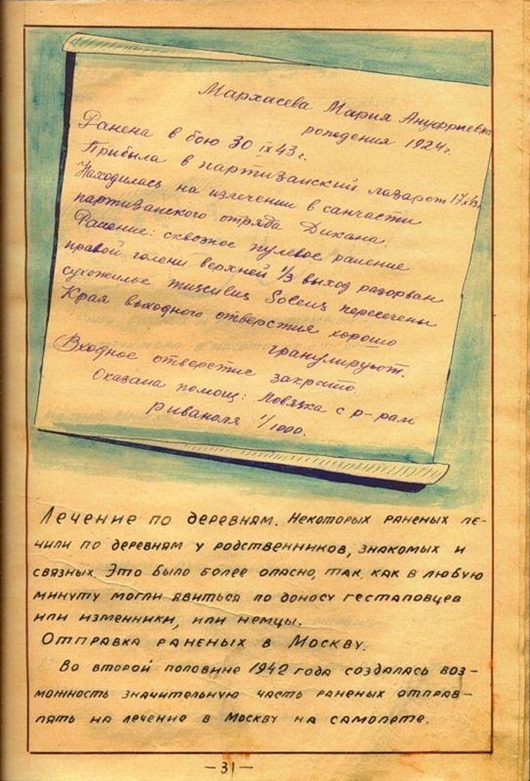 Мархасева Мария Ануфриевна
рождения 1924г.
Ранена в бою 30 IX 43 г.
Прибыла в партизанский лазарет 17 X 43
Находилась на излечении в санчасти
партизанского отряда Дикана.
Ранение: сквозное пулевое ранение
правой голени верхней 1/3 выход разорван
сухожилье пересечены
Края выходного отверстия хорошо
гранулируют.
Входное отверстие закрыто
Оказана помощ: Повязка с р-рам
Риваноля 1/1000.
Лечение по деревням. Некоторых раненых ле-
чили по деревням у родственников, знакомых и
связных Это было более опасно, так, как в любую
минуту могли явиться по доносу гестаповцев
или изменники, или немцы.
Отправка раненых в Москву.
Во второй половине 1942 года создалась воз-
можность значительную часть раненых отправ-
лять на лечение в Москву на самолете.
—31—